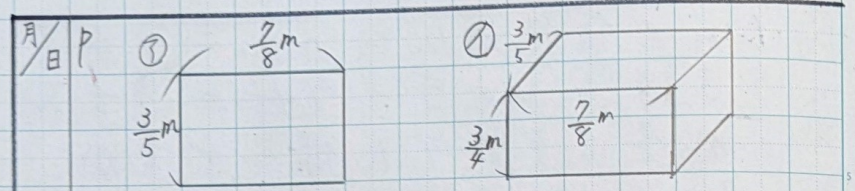 月/日 P
㋐ 7/8 m
3/5 m
㋑ 3/5 m
7/8 m
3/4 m
5